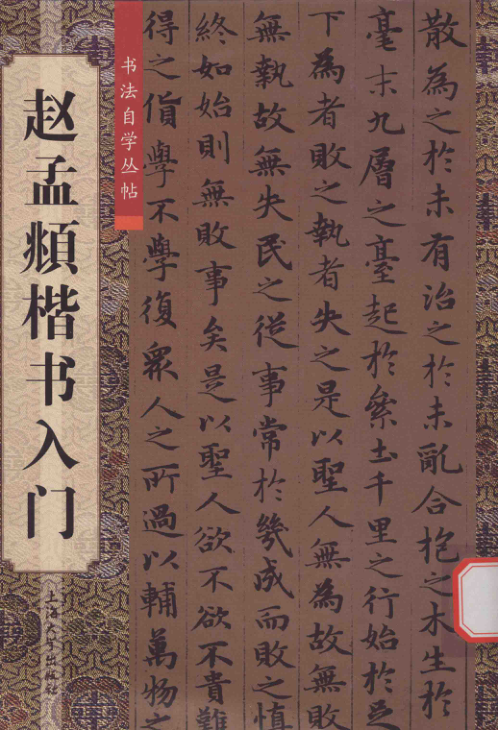 赵孟頫楷书入门
书法自学丛帖
散為之於未有治之於未亂合抱之木生於
毫末九層之臺起於絫土千里之行始於足
下為者敗之執者失之是以聖人無為故無敗
無執故無失民之從事常於幾成而敗之慎
終如始則無敗事矣是以聖人欲不欲不貴難
得之貨學不學復眾人之所過以輔萬物之
上海大学出版社